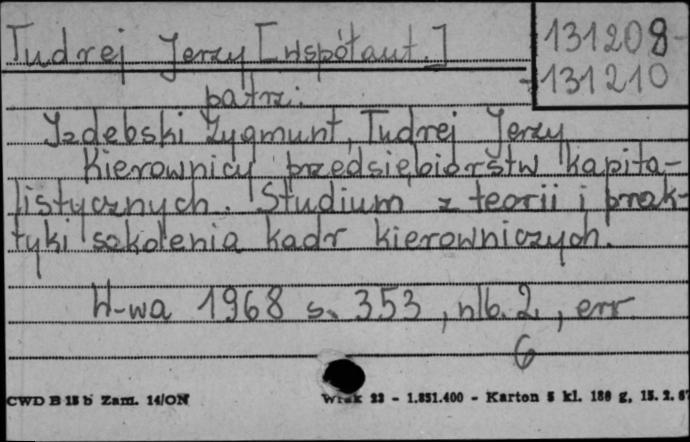 Tudrej Jerzy [współaut.]
131208-
-131210
patrz:
Izdebski Zygmunt, Tudrej Jerzy
Kierownicy przedsiębiorstw kapita-
listycznych. Studium z teorii i prak-
tyki szkolenia kadr kierowniczych.
W-wa 1968 s. 353, nlb. 2, err.
6
CWD B 15 b Zam. 14/ON
23 - 1.851.400 - Karton 5 kl. 180 g, 15. 2. 67